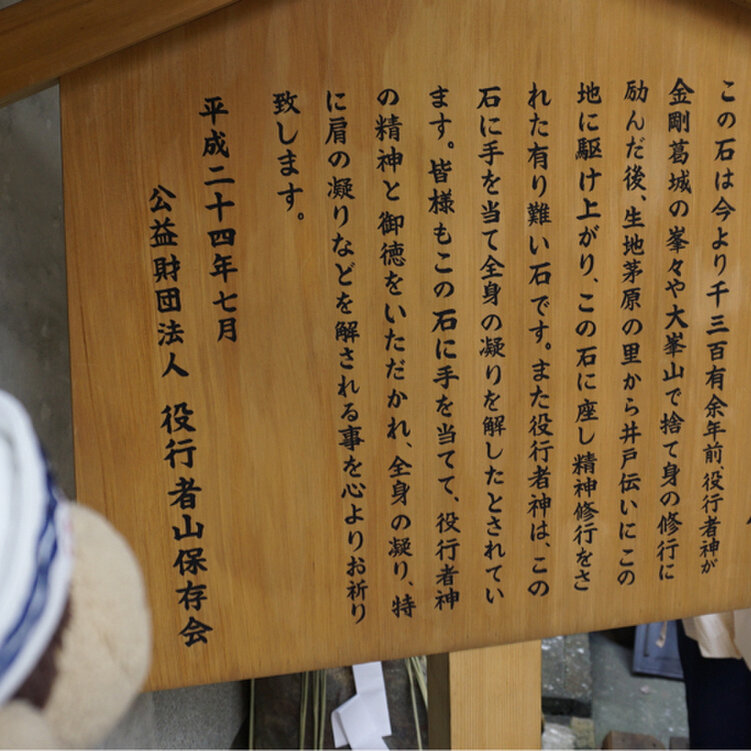 この石は今より千三百有余年前、役行者神が
金剛葛城の峯々や大峯山で捨て身の修行に
励んだ後、生地茅原の里から井戸伝いにこの
地に駆け上がり、この石に座し精神修行をさ
れた有り難い石です。また役行者神は、この
石に手を当て全身の凝りを解したとされてい
ます。皆様もこの石に手を当てて、役行者神
の精神と御徳をいただかれ、全身の凝り、特
に肩の凝りなどを解される事を心よりお祈り
致します。
平成二十四年七月
公益財団法人 役行者山保存会